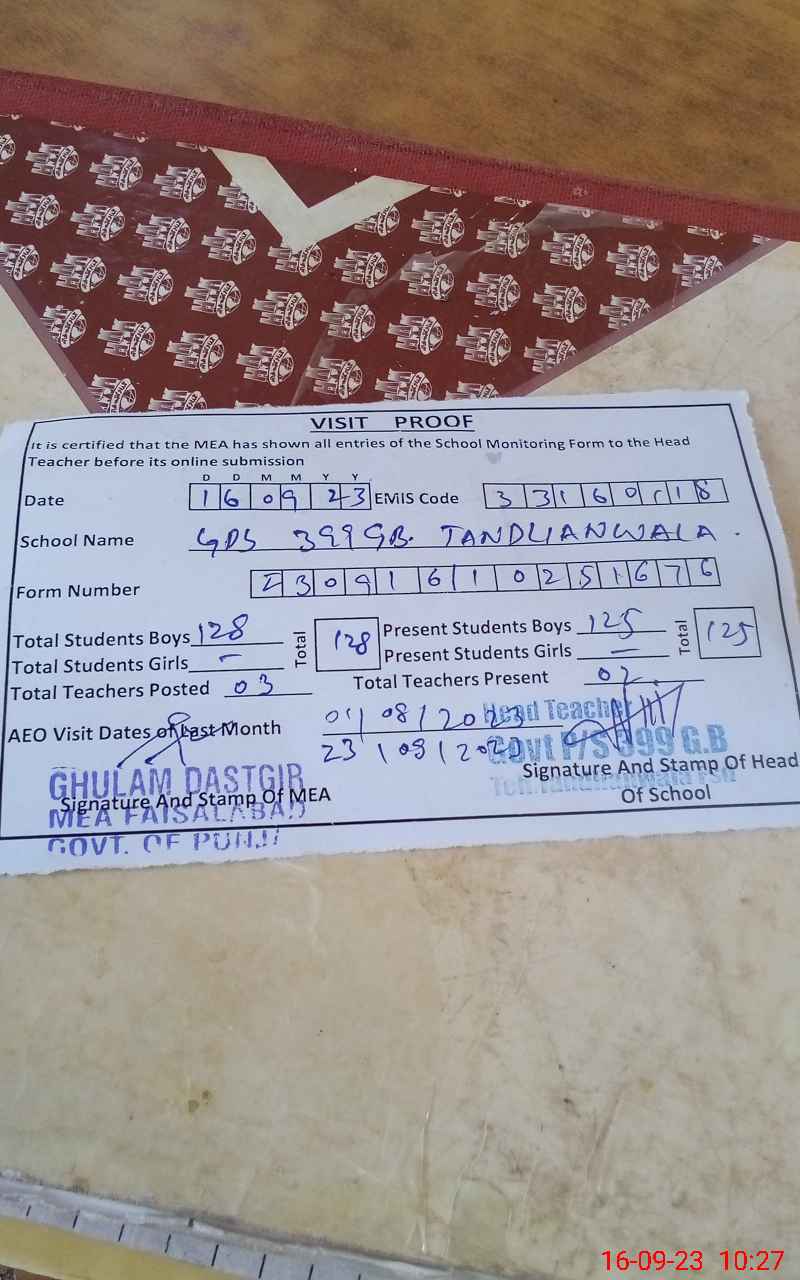 VISIT PROOF
It is certified that the MEA has shown all entries of the School Monitoring Form to the Head
Teacher before its online submission
D D M M Y Y
Date 16 09 23 EMIS Code 331601 18
School Name GPS 399 GB. TANDLIANWALA.
Form Number 230916 161 0251676
Total Students Boys 128 Total 128 Present Students Boys 125 Total 125
Total Students Girls - Present Students Girls -
Total Teachers Posted 03 Total Teachers Present 02
AEO Visit Dates of Last Month 01/08/2023
23/08/2023
Head Teacher
Govt P/S 399 G.B
GHULAM DASTGIR
Signature And Stamp Of MEA
MEA FAISALABAD
GOVT. OF PUNJ
Signature And Stamp Of Head
Of School
16-09-23 10:27